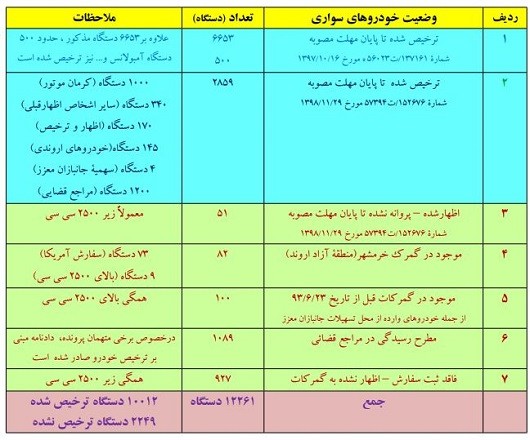 ردیف وضعیت خودروهای سواری تعداد (دستگاه) ملاحظات
۱ ترخیص شده تا پایان مهلت مصوبه ۶۶۵۳ علاوه بر ۶۶۵۳ دستگاه مذکور، حدود ۵۰۰
شمارهٔ ۱۳۷۱۶۱/ت۵۶۰۲۳ه مورخ ۱۳۹۷/۱۰/۱۶ ۵۰۰ دستگاه آمبولانس و... نیز ترخیص شده است
۲ ترخیص شده تا پایان مهلت مصوبه ۲۸۵۹ ۱۰۰۰ دستگاه (کرمان موتور)
شمارهٔ ۱۵۲۶۷۶/ت۵۷۳۹۴ مورخ ۱۳۹۸/۱۱/۲۹ ۳۴۰ دستگاه (سایر اشخاص اظهارقبلی)
۱۷۰ دستگاه (اظهار و ترخیص)
۱۴۵ دستگاه(خودروهای اروندی)
۴ دستگاه (سهمیهٔ جانبازان معزز)
۱۲۰۰ دستگاه (مراجع قضایی)
۳ اظهارشده – پروانه نشده تا پایان مهلت مصوبه ۵۱ معمولاً زیر ۲۵۰۰ سی سی
شمارهٔ ۱۵۲۶۷۶/ت۵۷۳۹۴ مورخ ۱۳۹۸/۱۱/۲۹
۴ موجود در گمرک خرمشهر(منطقهٔ آزاد اروند) ۸۲ ۷۳ دستگاه (سفارش آمریکا)
۹ دستگاه (بالای ۲۵۰۰ سی سی)
۵ موجود در گمرکات قبل از تاریخ ۹۳/۶/۲۳ ۱۰۰ همگی بالای ۲۵۰۰ سی سی
از جمله خودروهای وارده از محل تسهیلات جانبازان معزز
۶ مطرح رسیدگی در مراجع قضائی ۱۰۸۹ درخصوص برخی متهمان پرونده، دادنامه مبنی
بر ترخیص خودرو صادر شده است
۷ فاقد ثبت سفارش – اظهار نشده به گمرکات ۹۲۷ همگی زیر ۲۵۰۰ سی سی
جمع ۱۲۲۶۱ دستگاه ۱۰۰۱۲ دستگاه ترخیص شده
۲۲۴۹ دستگاه ترخیص نشده